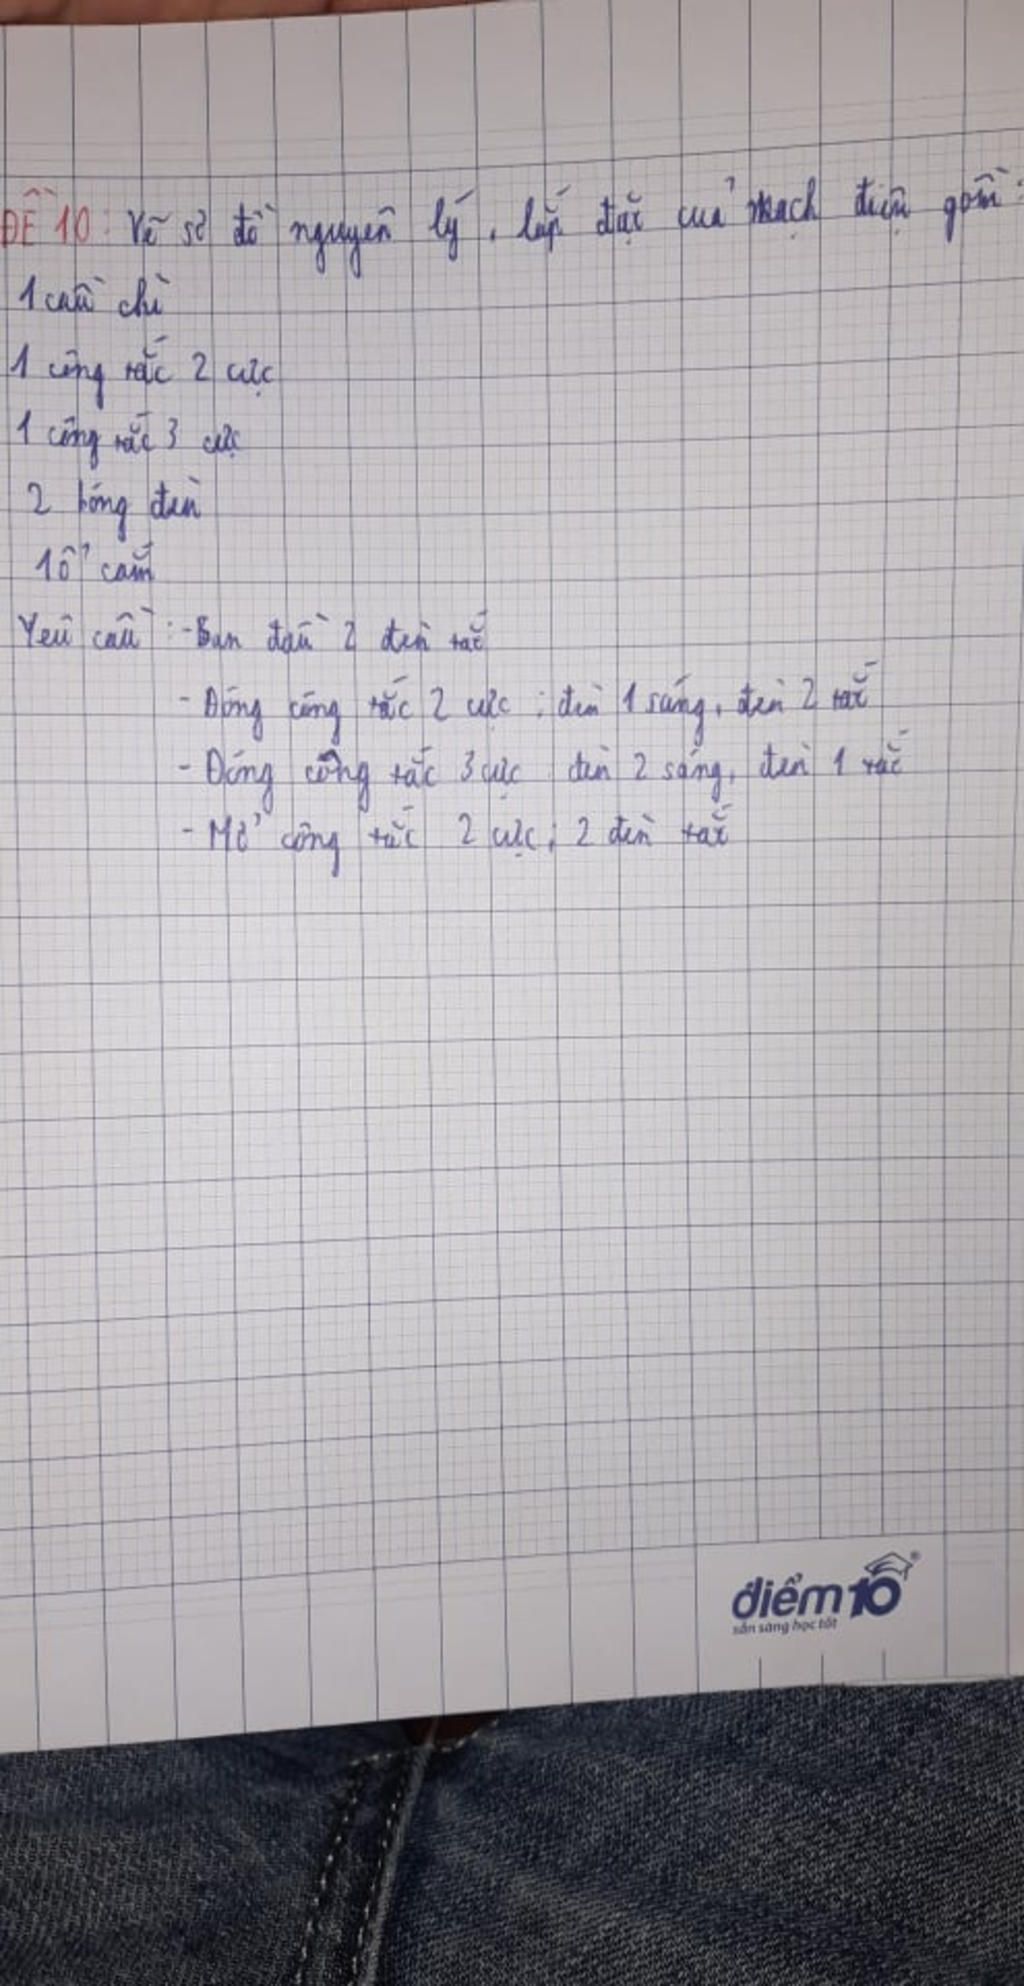 ĐỀ 10: Vẽ sơ đồ nguyên lý, lắp đặt của mạch điện gồm:
1 cầu chì
1 công tắc 2 cực
1 công tắc 3 cực
2 bóng đèn
1 ổ cắm
Yêu cầu: - Ban đầu 2 đèn tắt
- Đóng công tắc 2 cực: đèn 1 sáng, đèn 2 tắt
- Đóng công tắc 3 cực đèn 2 sáng, đèn 1 tắt
- Mở công tắc 2 cực: 2 đèn tắt
điểm 10
sẵn sàng học tốt